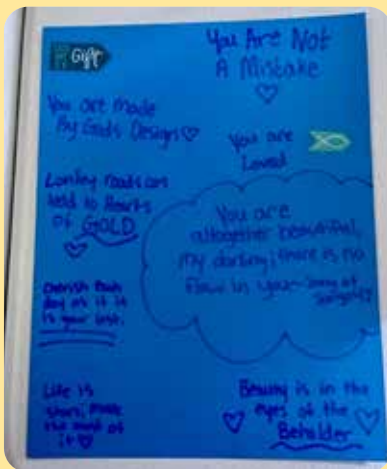 Gift
You Are Not
A Mistake
You are Made
By Gods Design
You are
Loved
Lonley roads can
lead to Hearts
of GOLD
You are
altogether beautiful,
my darling; there is no
flaw in you - Song of
Songs 4:7
Cherish Each
day as if it
is your last.
Life is
short, make
the most of
it
Beauty is in the
eyes of the
Beholder